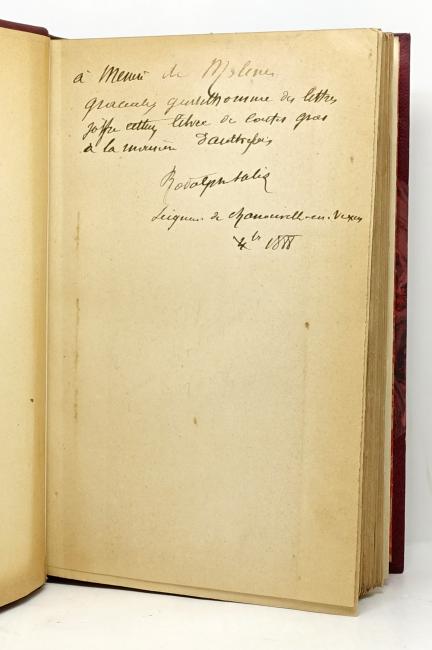 à Henri de Molènes
gracieulx gentilhomme des lettres
j'offre cettuy libvre de contes gras
à la manière d'aultrefois
Rodolphe Salis
Seigneur de Chanoirville-en-Vexin
Xbre 1888